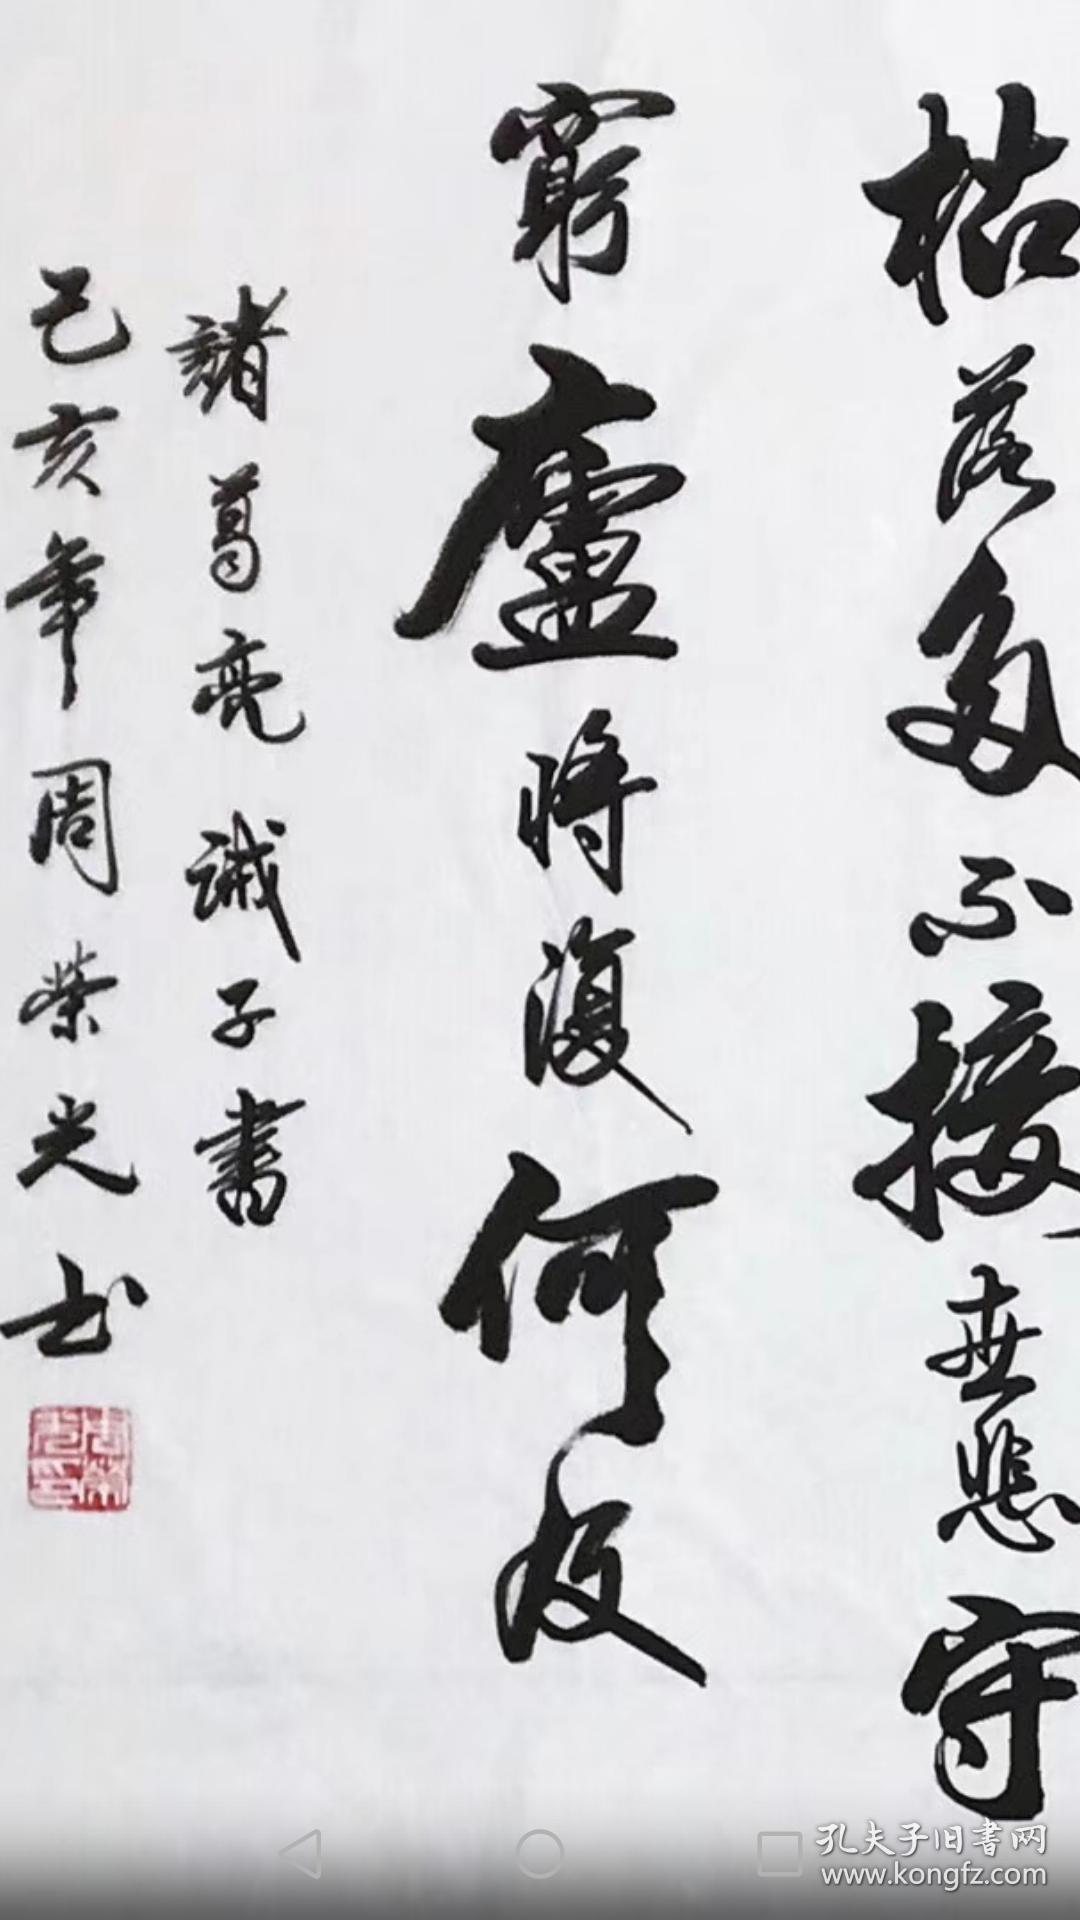 枯落多不接世悲守
窮廬將復何及
諸葛亮誡子書
己亥年周榮光书
周榮光印
孔夫子旧書网
www.kongfz.com